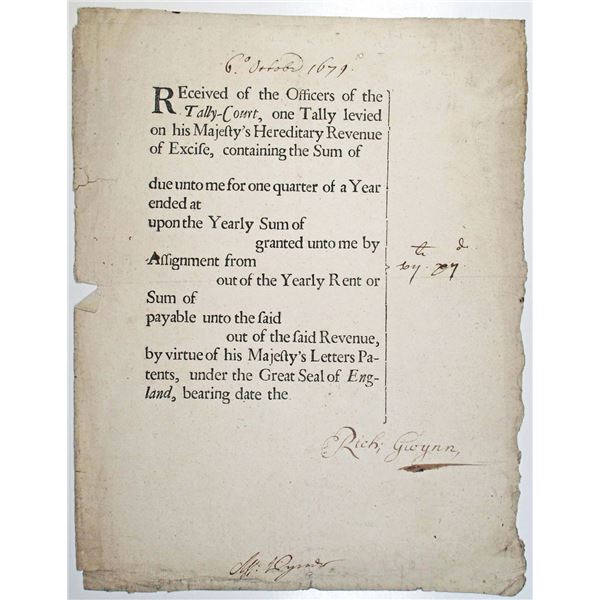 6.º October 1679.
REceived of the Officers of the
Tally-Court, one Tally levied
on his Majeſty's Hereditary Revenue
of Exciſe, containing the Sum of
due unto me for one quarter of a Year
ended at
upon the Yearly Sum of
granted unto me by
Aſſignment from
out of the Yearly Rent or
Sum of
payable unto the ſaid
out of the ſaid Revenue,
by virtue of his Majeſty's Letters Pa-
tents, under the Great Seal of Eng-
land, bearing date the
Rich: Gwynn,